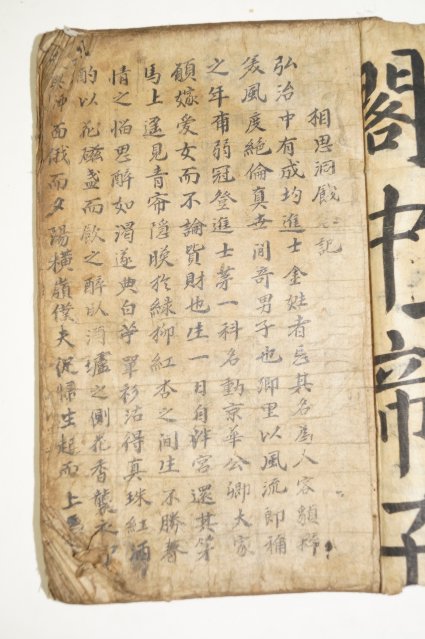 閣中帝子
相思洞餞〻記
弘治中有成均進士金姓者忘其名爲人容貌粹
美風度絶倫真世间奇男子也卿里以風流郎稱
之年甫弱冠登進士苐一科名動京華公卿大家
願嫁愛女而不論貲財也生一日自泮宮還其苐
馬上遙見青帘隐暎於綠柳紅杏之间生不勝春
情之惱思醉如渴遂典白苧單衫沽得真珠紅酒
酌以花磁盞而飲之醉臥酒壚之側花香襲衣
面俄而夕陽橫嶺僕夫促歸生起而上馬